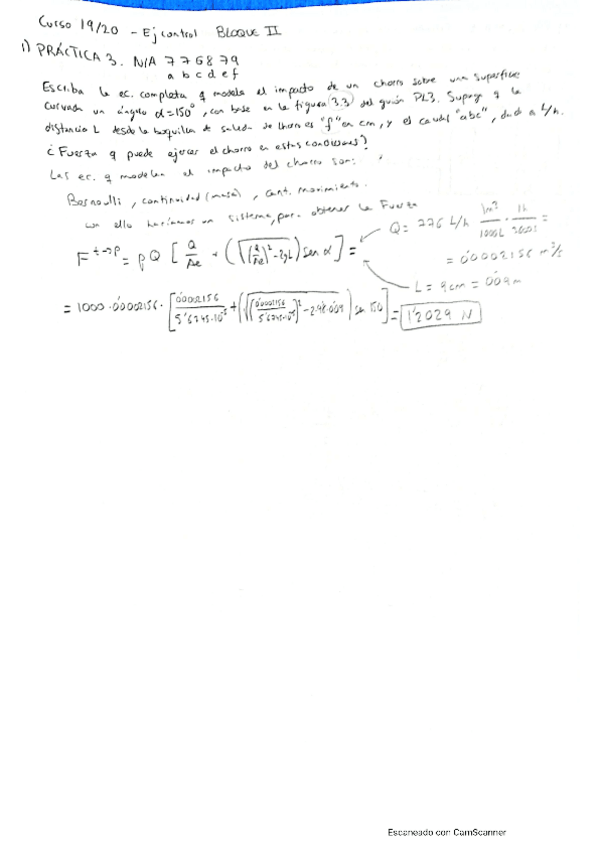 Curso 19/20 - Ej control BLOQUE II
1) PRÁCTICA 3. N/A 7 7 6 8 7 9
a b c d e f
Escriba la ec. completa q modela el impacto de un chorro sobre una superficie
curvada un ángulo α=150°, con base en la figura (3.3) del guión PL3. Suponga q la
distancia L desde la boquilla de salida de chorro es "f" en cm, y el caudal "abc", dado a L/h.
¿Fuerza q puede ejercer el chorro en estas condiciones?
Las ec. q modelan el impacto del chorro son:
Bernoulli, continuidad (masa), cant. movimiento.
con ello haríamos un sistema, para obtener la Fuerza
Q = 776 L/h 1m³/1000L · 1h/3600s =
= 0'0002156 m³/s
F^{t→p} = ρQ [ Q/Ae + (√((Q/Ae)² - 2gL)) sen α ] =
L = 9cm = 0'09m
= 1000 · 0'0002156 · [ 0'0002156/5'6745·10⁻⁵ + (√((0'0002156/5'6745·10⁻⁵)² - 2·9'8·0'09)) sen 150 ] = 1'2029 N
Escaneado con CamScanner